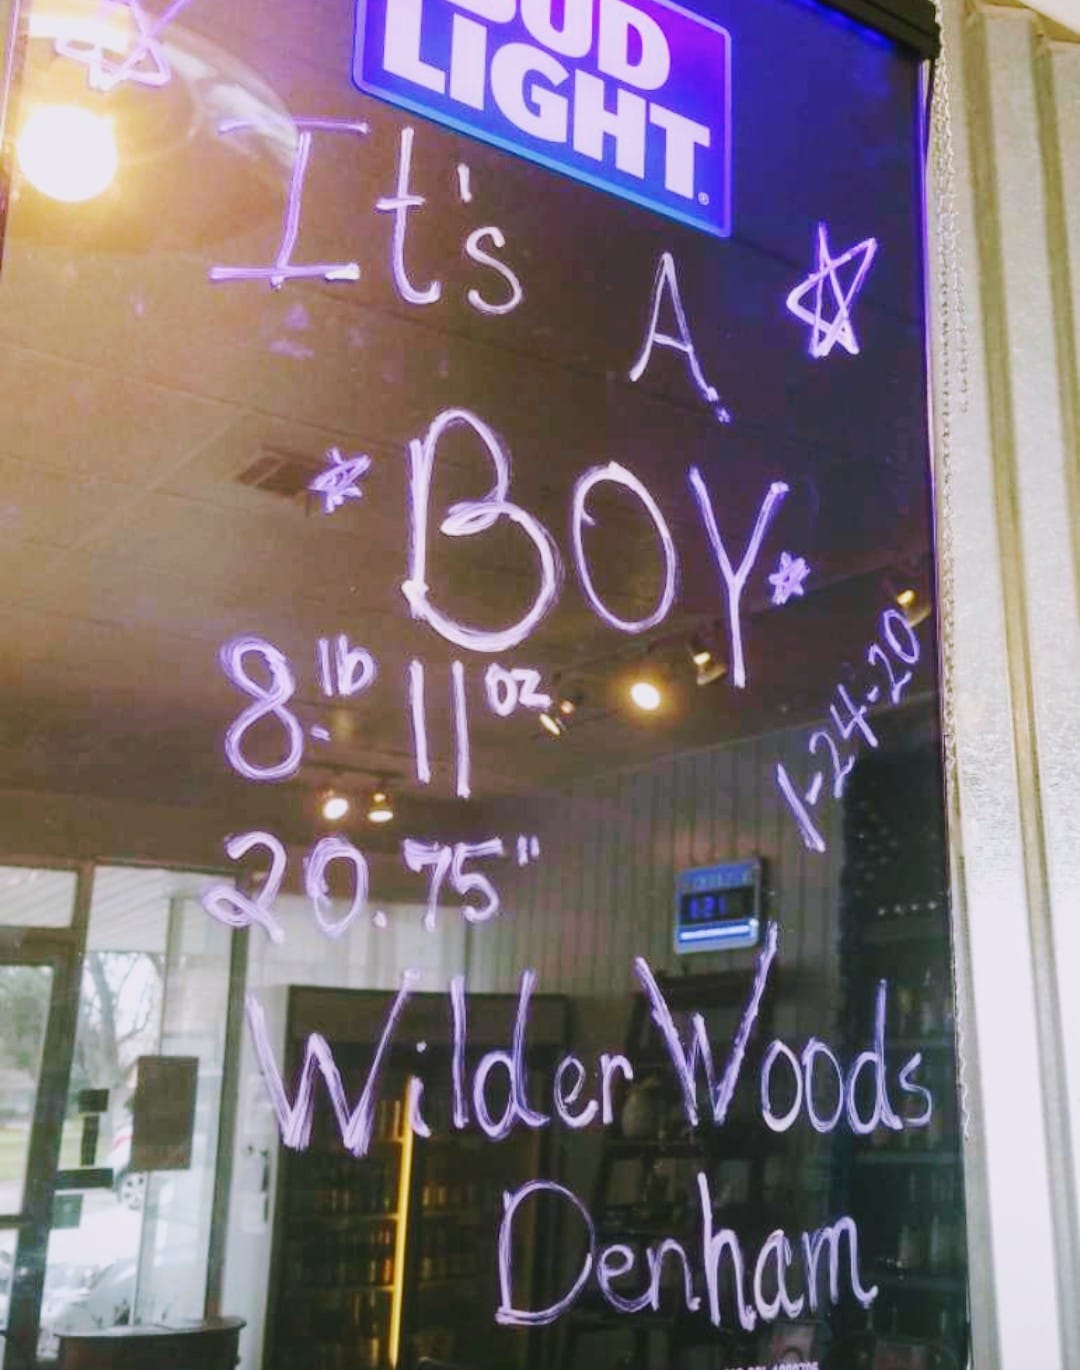 BUD
LIGHT®
It's A
BOY
8.lb 11oz
1-24-20
20.75"
Wilder Woods
Denham